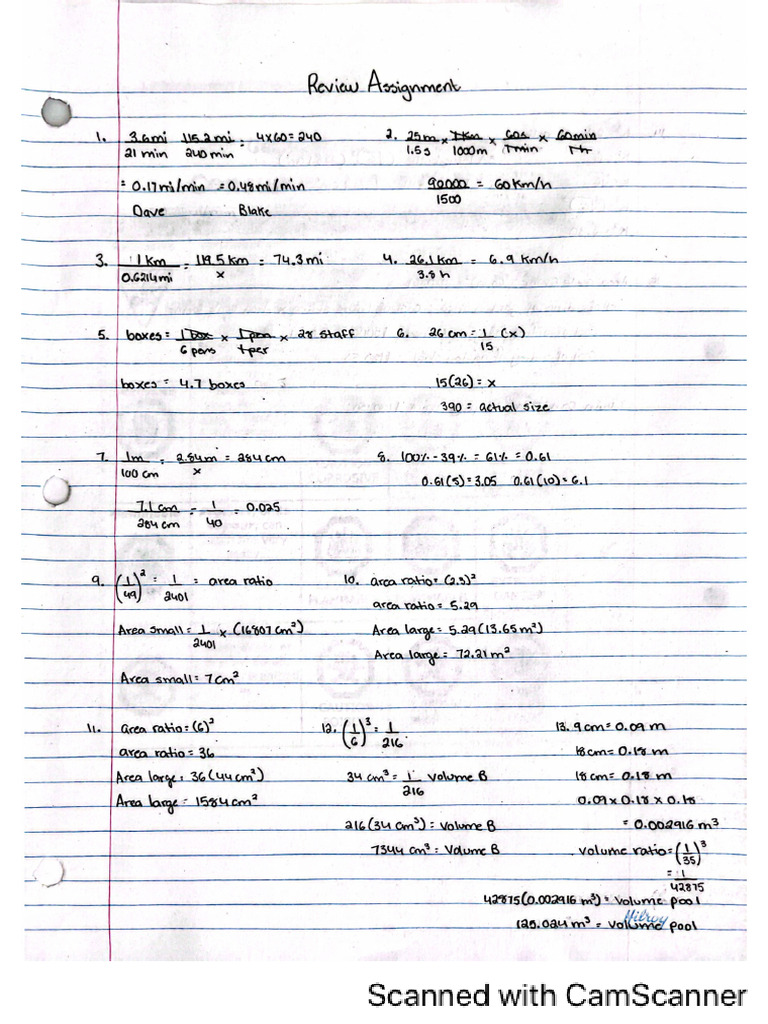 Review Assignment
1. 3.6mi/21 min 115.2mi/240 min = 4x60=240
= 0.17mi/min = 0.48mi/min
Dave Blake
2. 25m/1.5s x 1km/1000m x 60s/1min x 60min/1hr
90000/1500 = 60Km/h
3. 1km/0.6214mi = 119.5km/x = 74.3mi
4. 26.1km/3.8h = 6.9 Km/h
5. boxes = 1box/6pens x 1pen/1per x 28 staff
boxes = 4.7 boxes
6. 26cm = 1/15 (x)
15(26) = x
390 = actual size
7. 1m/100cm = 2.84m/x = 284cm
7.1cm/284cm = 1/40 = 0.025
8. 100% - 39% = 61% = 0.61
0.61(5) = 3.05 0.61(10) = 6.1
9. (1/49)² = 1/2401 = area ratio
Area small = 1/2401 x (16807cm²)
Area small = 7cm²
10. area ratio = (2.3)²
area ratio = 5.29
Area large = 5.29(13.65m²)
Area large = 72.21m²
11. area ratio = (6)²
area ratio = 36
Area large = 36(44cm²)
Area large = 1584cm²
12. (1/6)³ = 1/216
34cm³ = 1/216 volume B
216(34cm³) = Volume B
7344cm³ = Volume B
13. 9cm = 0.09m
18cm = 0.18m
18cm = 0.18m
0.09 x 0.18 x 0.18
= 0.002916m³
volume ratio = (1/35)³
= 1/42875
42875(0.002916m³) = volume pool
125.024m³ = volume pool
Hilroy
Scanned with CamScanner